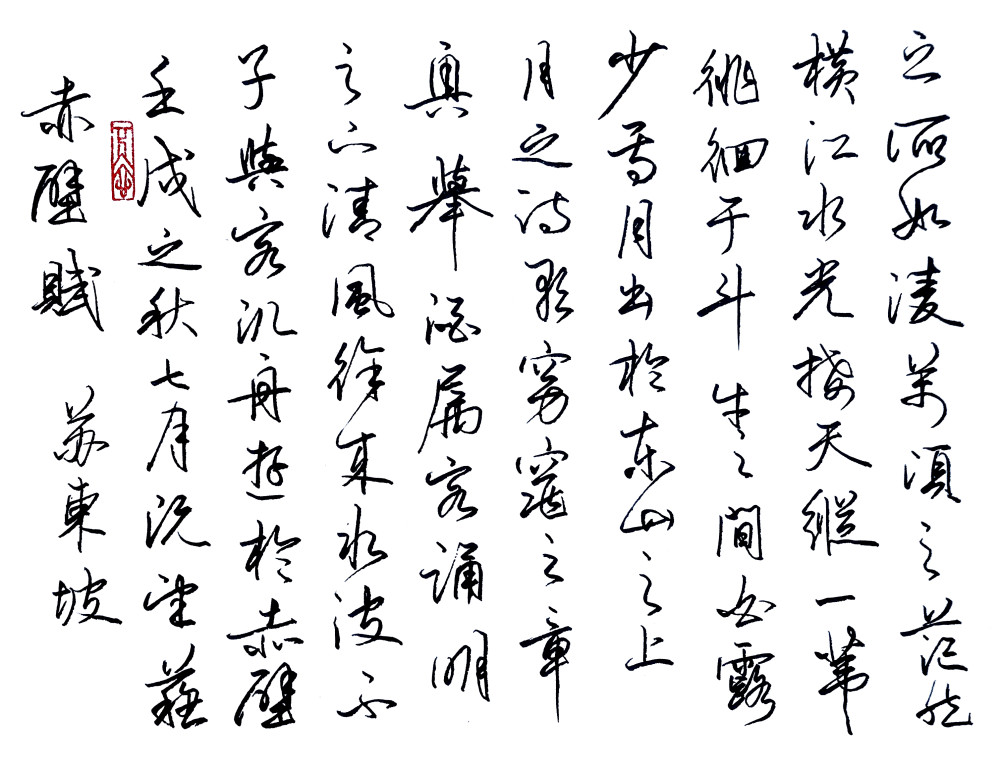 赤壁賦 苏東坡
壬戌之秋七月既望蘇
子與客汎舟遊於赤壁
之下清風徐来水波不
興舉酒属客誦明
月之诗歌窈窕之章
少焉月出於东山之上
徘徊于斗牛之間白露
横江水光接天縱一葦
之所如凌萬頃之茫然